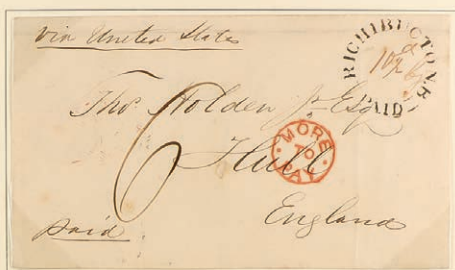 via United States
RICHIBUCTO N.B
PAID
Thos Holden Jr Esqr
6
MORE
TO
PAY
Hull
England
paid